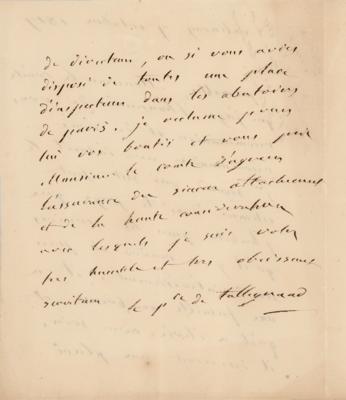 de directeur, ou si vous aviés
disposé de toutes une place
d'inspecteur dans les abatoirs
de paris. je reclame pour
lui vos bontés et vous prie
Monsieur le comte d'agréer
l'assurance du sincere attachement
et de la haute consideration
avec lesquels je suis votre
tres humble et tres obeissant
serviteur
le p.ce de Talleyrand